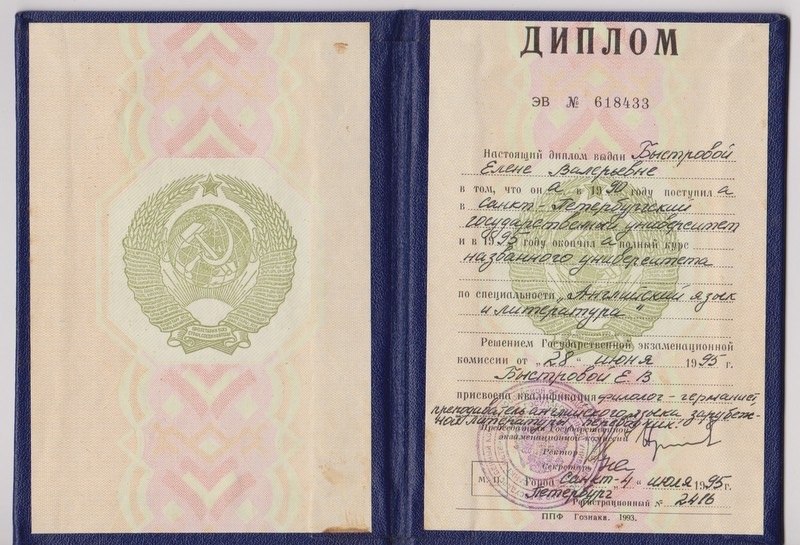 ДИПЛОМ
ЭВ № 618433
Настоящий диплом выдан Быстровой
Елене Валерьевне
в том, что он а в 1990 году поступил а
в Санкт-Петербургский
государственный университет
и в 1995 году окончил а полный курс
названного университета
по специальности „Английский язык
и литература"
Решением Государственной экзаменационной
комиссии от „28" июня 1995 г.
Быстровой Е. В
присвоена квалификация филолог-германист,
преподаватель английского языка и зарубеж-
ной литературы, переводчик.
Председатель Государственной
экзаменационной комиссии
Ректор
Секретарь
М. П. Город Санкт- „4" июля 1995 г.
Петербург
Регистрационный № 2416
ППФ Гознака. 1993.